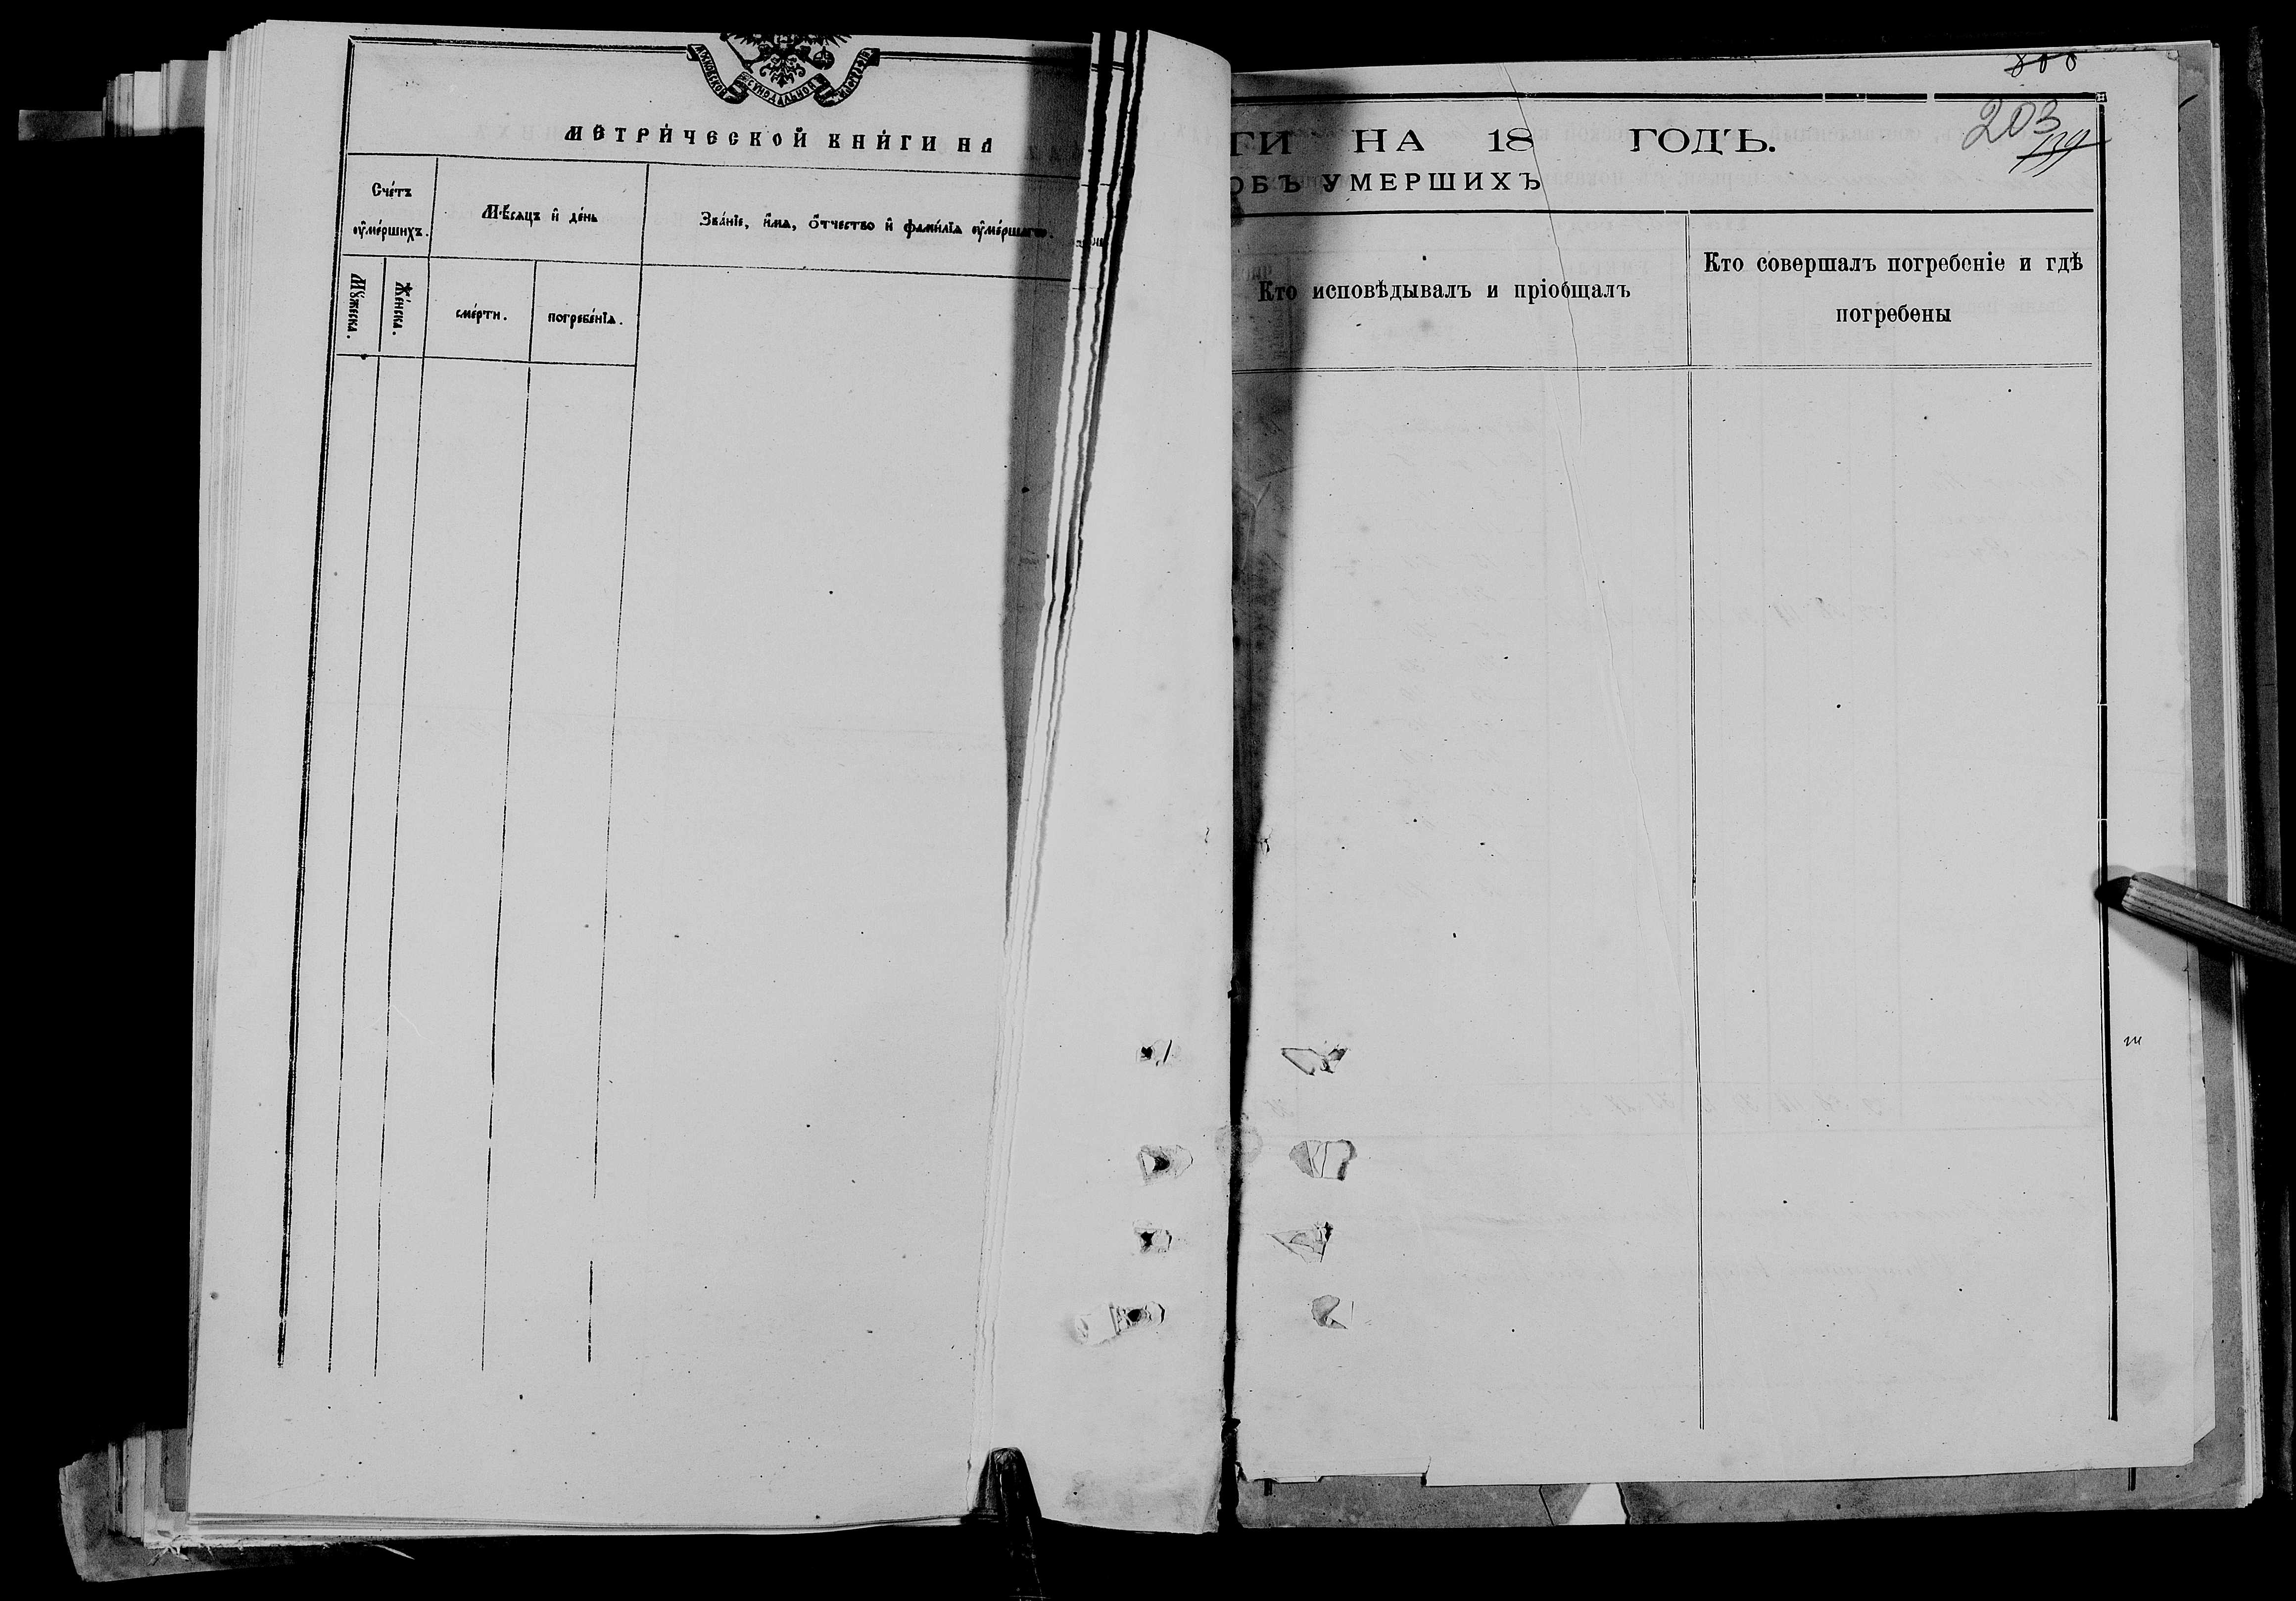 МЕТРИ́ЧЕСКОЙ КНИ́ГИ НА
Сче́тъ
ᲂу҆ме́ршихъ.
Мѣ́сяцъ и҆ де́нь
Зва́нїе, и҆́мя, ѻ҆́тчество и҆ фами́лїя ᲂу҆ме́ршагѡ.
Мꙋ́жеска.
Же́нска.
сме́рти.
погребе́нїя.
868
203
739
ГИ НА 18 ГОДЪ.
ОБЪ УМЕРШИХЪ
Кто исповѣдывалъ и пріобщалъ
Кто совершалъ погребеніе и гдѣ
погребены